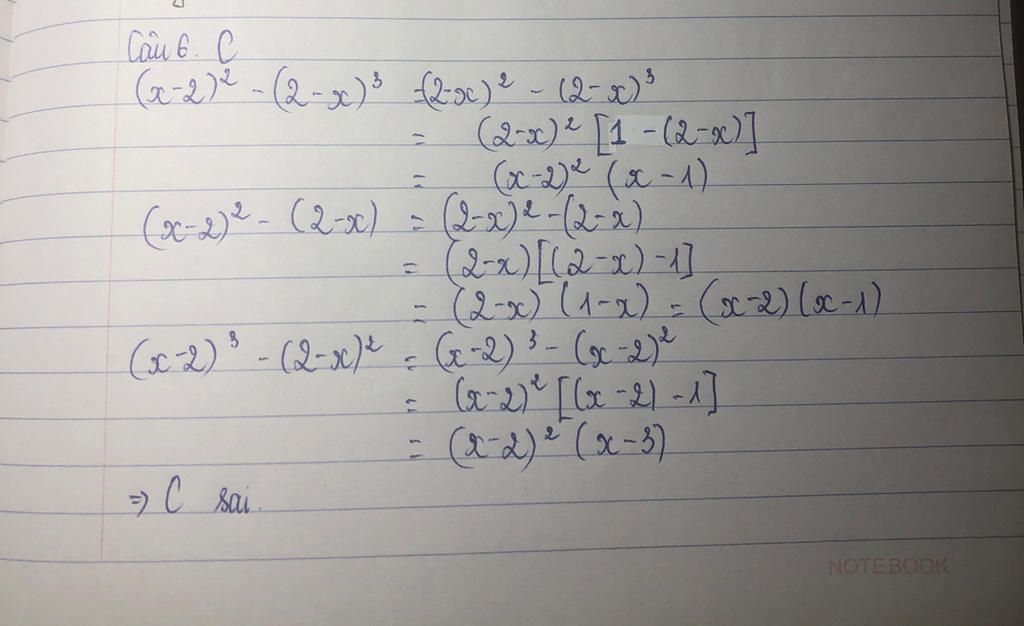 Câu 6. C
(x-2)² - (2-x)³ = (2-x)² - (2-x)³
= (2-x)² [1 - (2-x)]
= (x-2)² (x-1)
(x-2)² - (2-x) = (2-x)² - (2-x)
= (2-x) [(2-x) - 1]
= (2-x) (1-x) = (x-2) (x-1)
(x-2)³ - (2-x)² = (x-2)³ - (x-2)²
= (x-2)² [(x-2) - 1]
= (x-2)² (x-3)
⇒ C sai.
NOTEBOOK